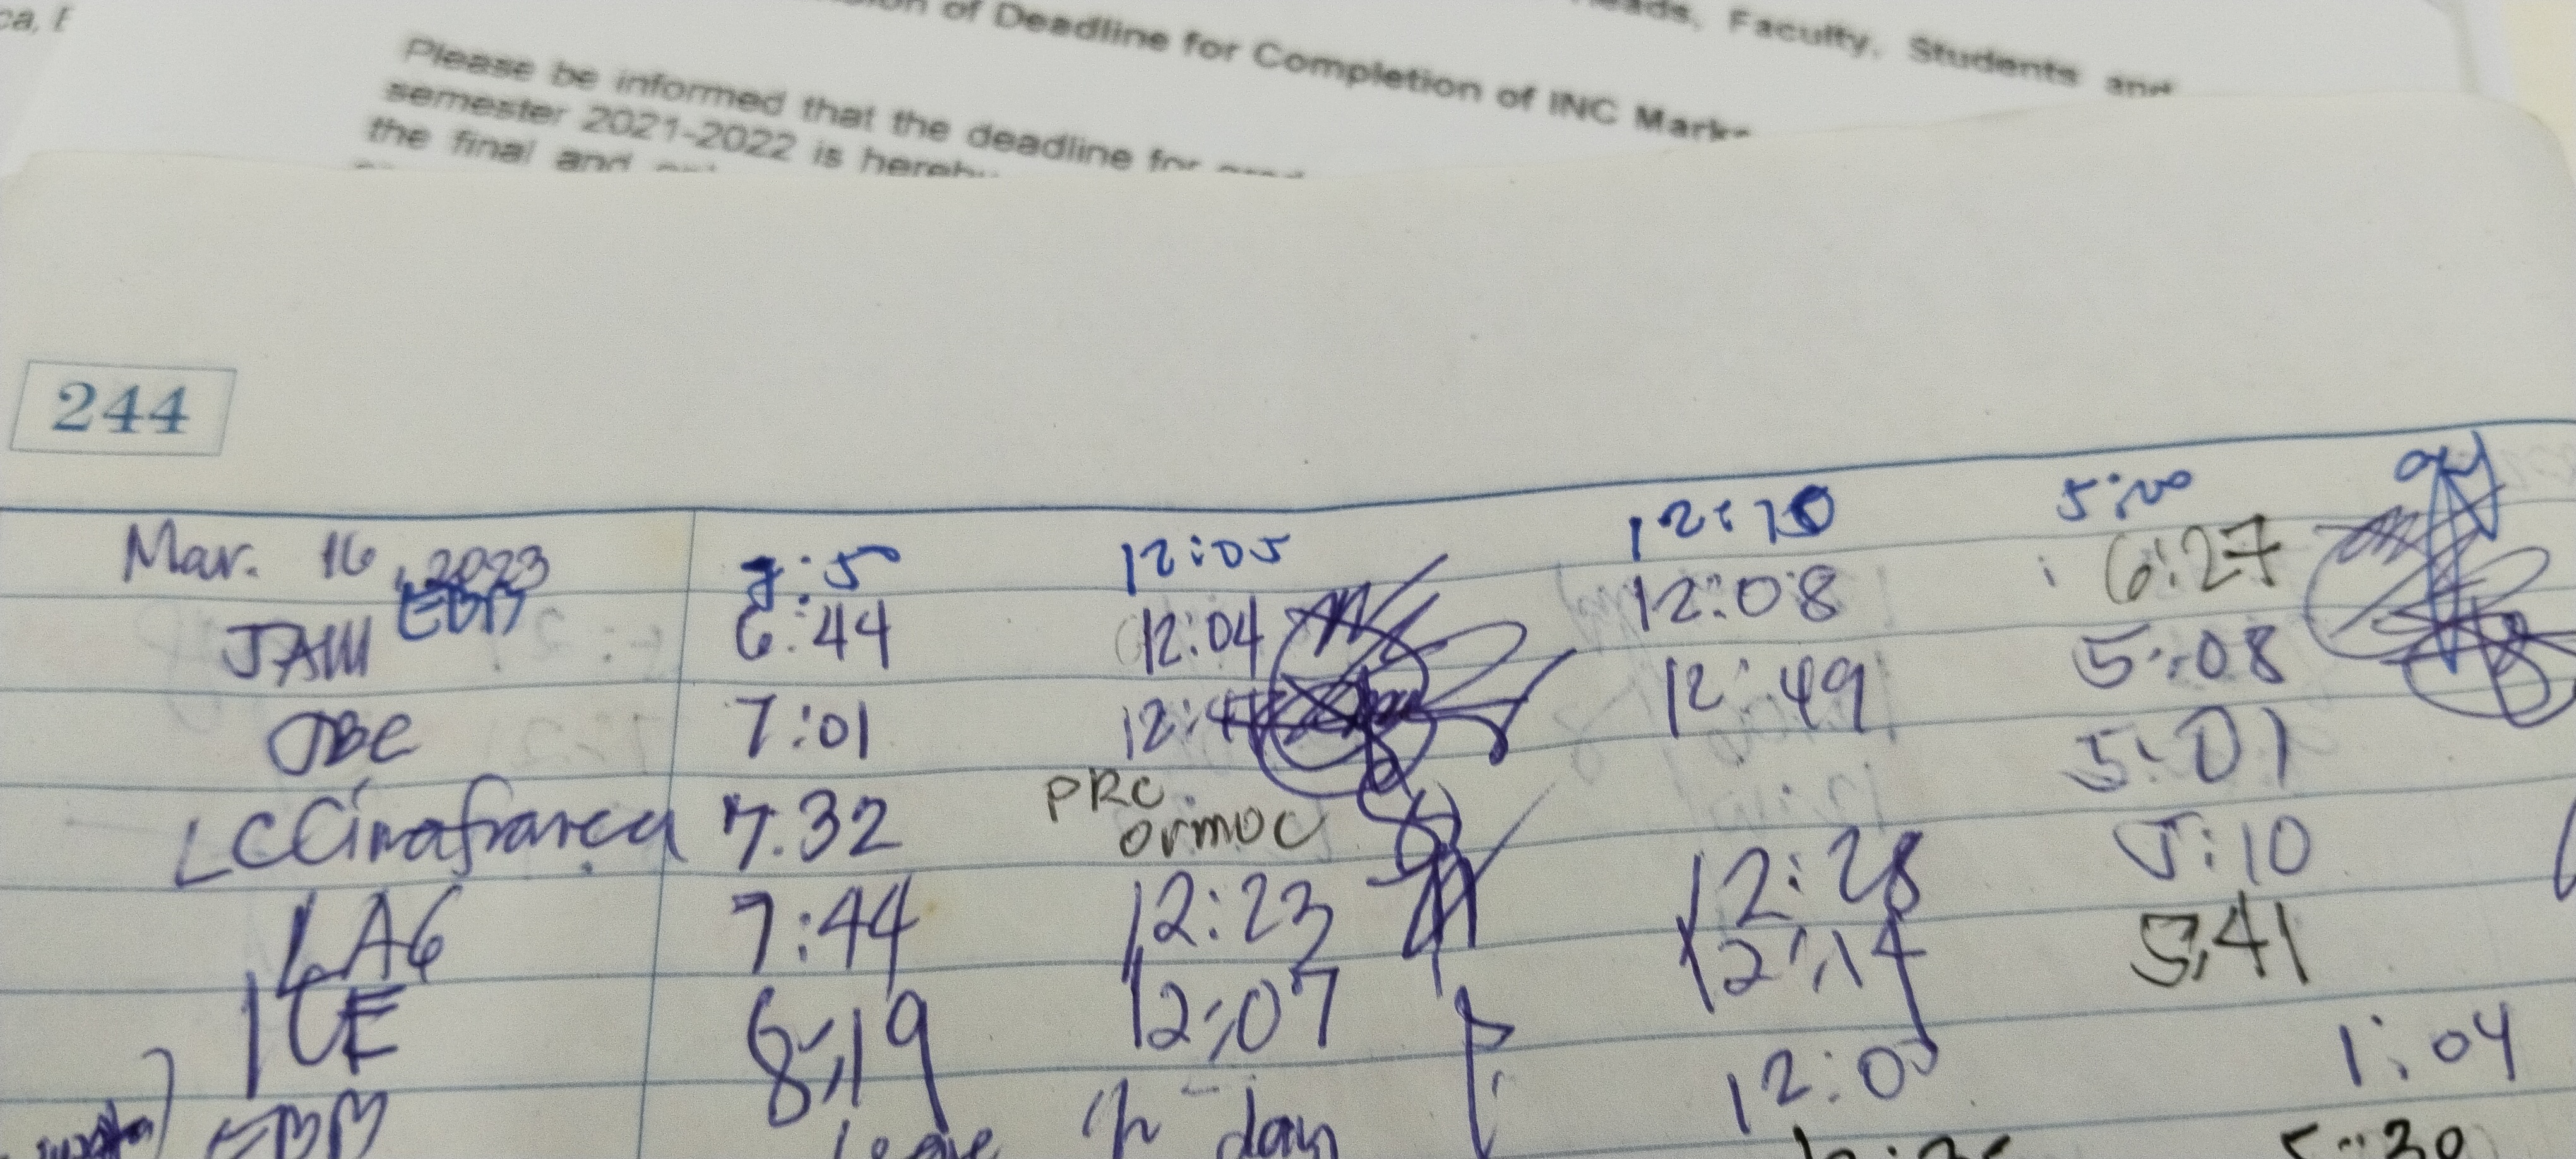 of Deadline for Completion of INC Marks
Faculty, Students and
Please be informed that the deadline for
semester 2021-2022 is hereby
the final and
244
Mar. 16, 2023 12:05 12:10 5:00
EBM
JAM 6:44 12:04 12:08 6:27
JBC 7:01 12:49 5:08
5:01
LCCinafranca 7.32 PRC
ormoc
5:10
LAG 7:44 12:23 12:28
12:07 12:14 5:41
8:19
EBM leave day 12:05 1:04
5:30